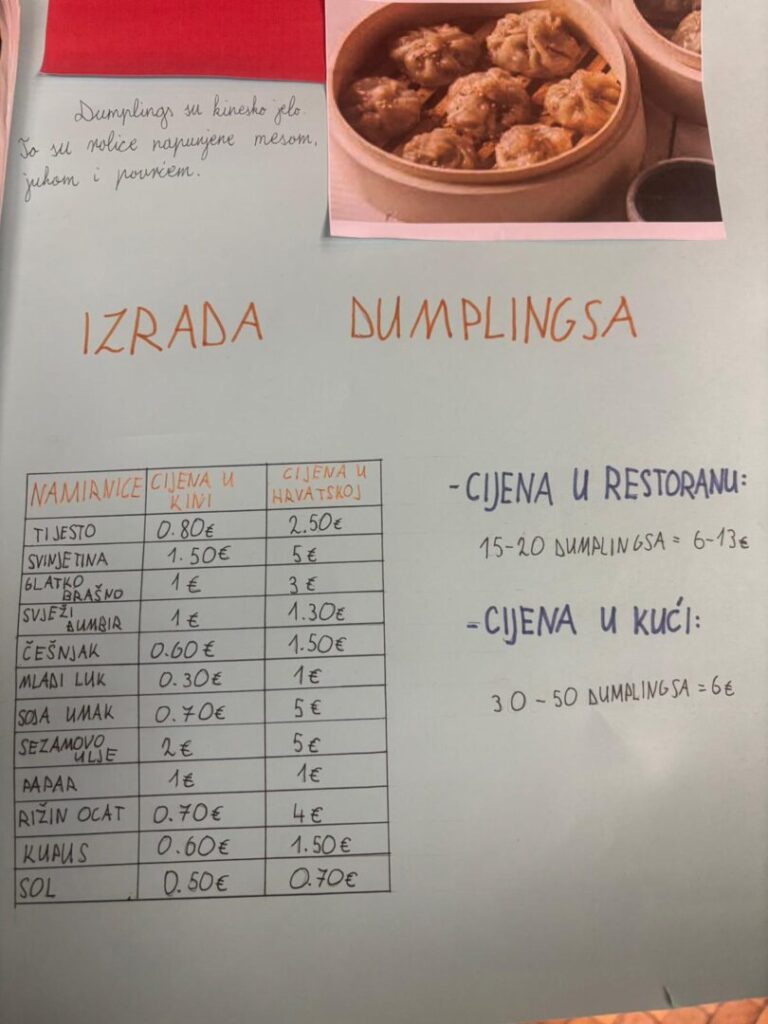 Dumplings su kinesko jelo.
To su rolice napunjene mesom,
juhom i povrćem.
IZRADA DUMPLINGSA
NAMIRNICE CIJENA U KINI CIJENA U HRVATSKOJ
TIJESTO 0.80€ 2.50€
SVINJETINA 1.50€ 5€
GLATKO BRAŠNO 1€ 3€
SVJEŽI ĐUMBIR 1€ 1.30€
ČEŠNJAK 0.60€ 1.50€
MLADI LUK 0.30€ 1€
SOJA UMAK 0.70€ 5€
SEZAMOVO ULJE 2€ 5€
PAPAR 1€ 1€
RIŽIN OCAT 0.70€ 4€
KUPUS 0.60€ 1.50€
SOL 0.50€ 0.70€
-CIJENA U RESTORANU:
15-20 DUMPLINGSA = 6-13€
-CIJENA U KUĆI:
30-50 DUMPLINGSA = 6€